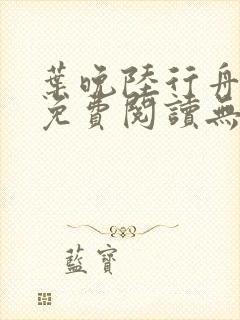 葉晚陸行舟
免費閱讀無
藍寶